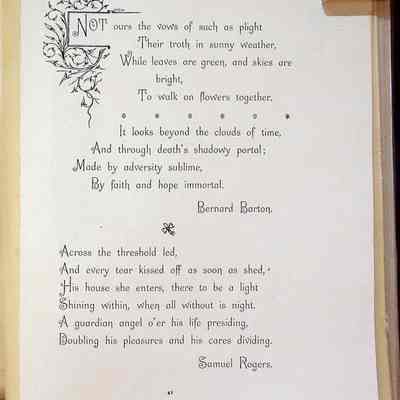 NOT ours the vows of such as plight
Their troth in sunny weather,
While leaves are green, and skies are
bright,
To walk on flowers together.
* * * * * *
It looks beyond the clouds of time,
And through death's shadowy portal;
Made by adversity sublime,
By faith and hope immortal.
Bernard Barton.
Across the threshold led,
And every tear kissed off as soon as shed,
His house she enters, there to be a light
Shining within, when all without is night.
A guardian angel o'er his life presiding,
Doubling his pleasures and his cares dividing.
Samuel Rogers.